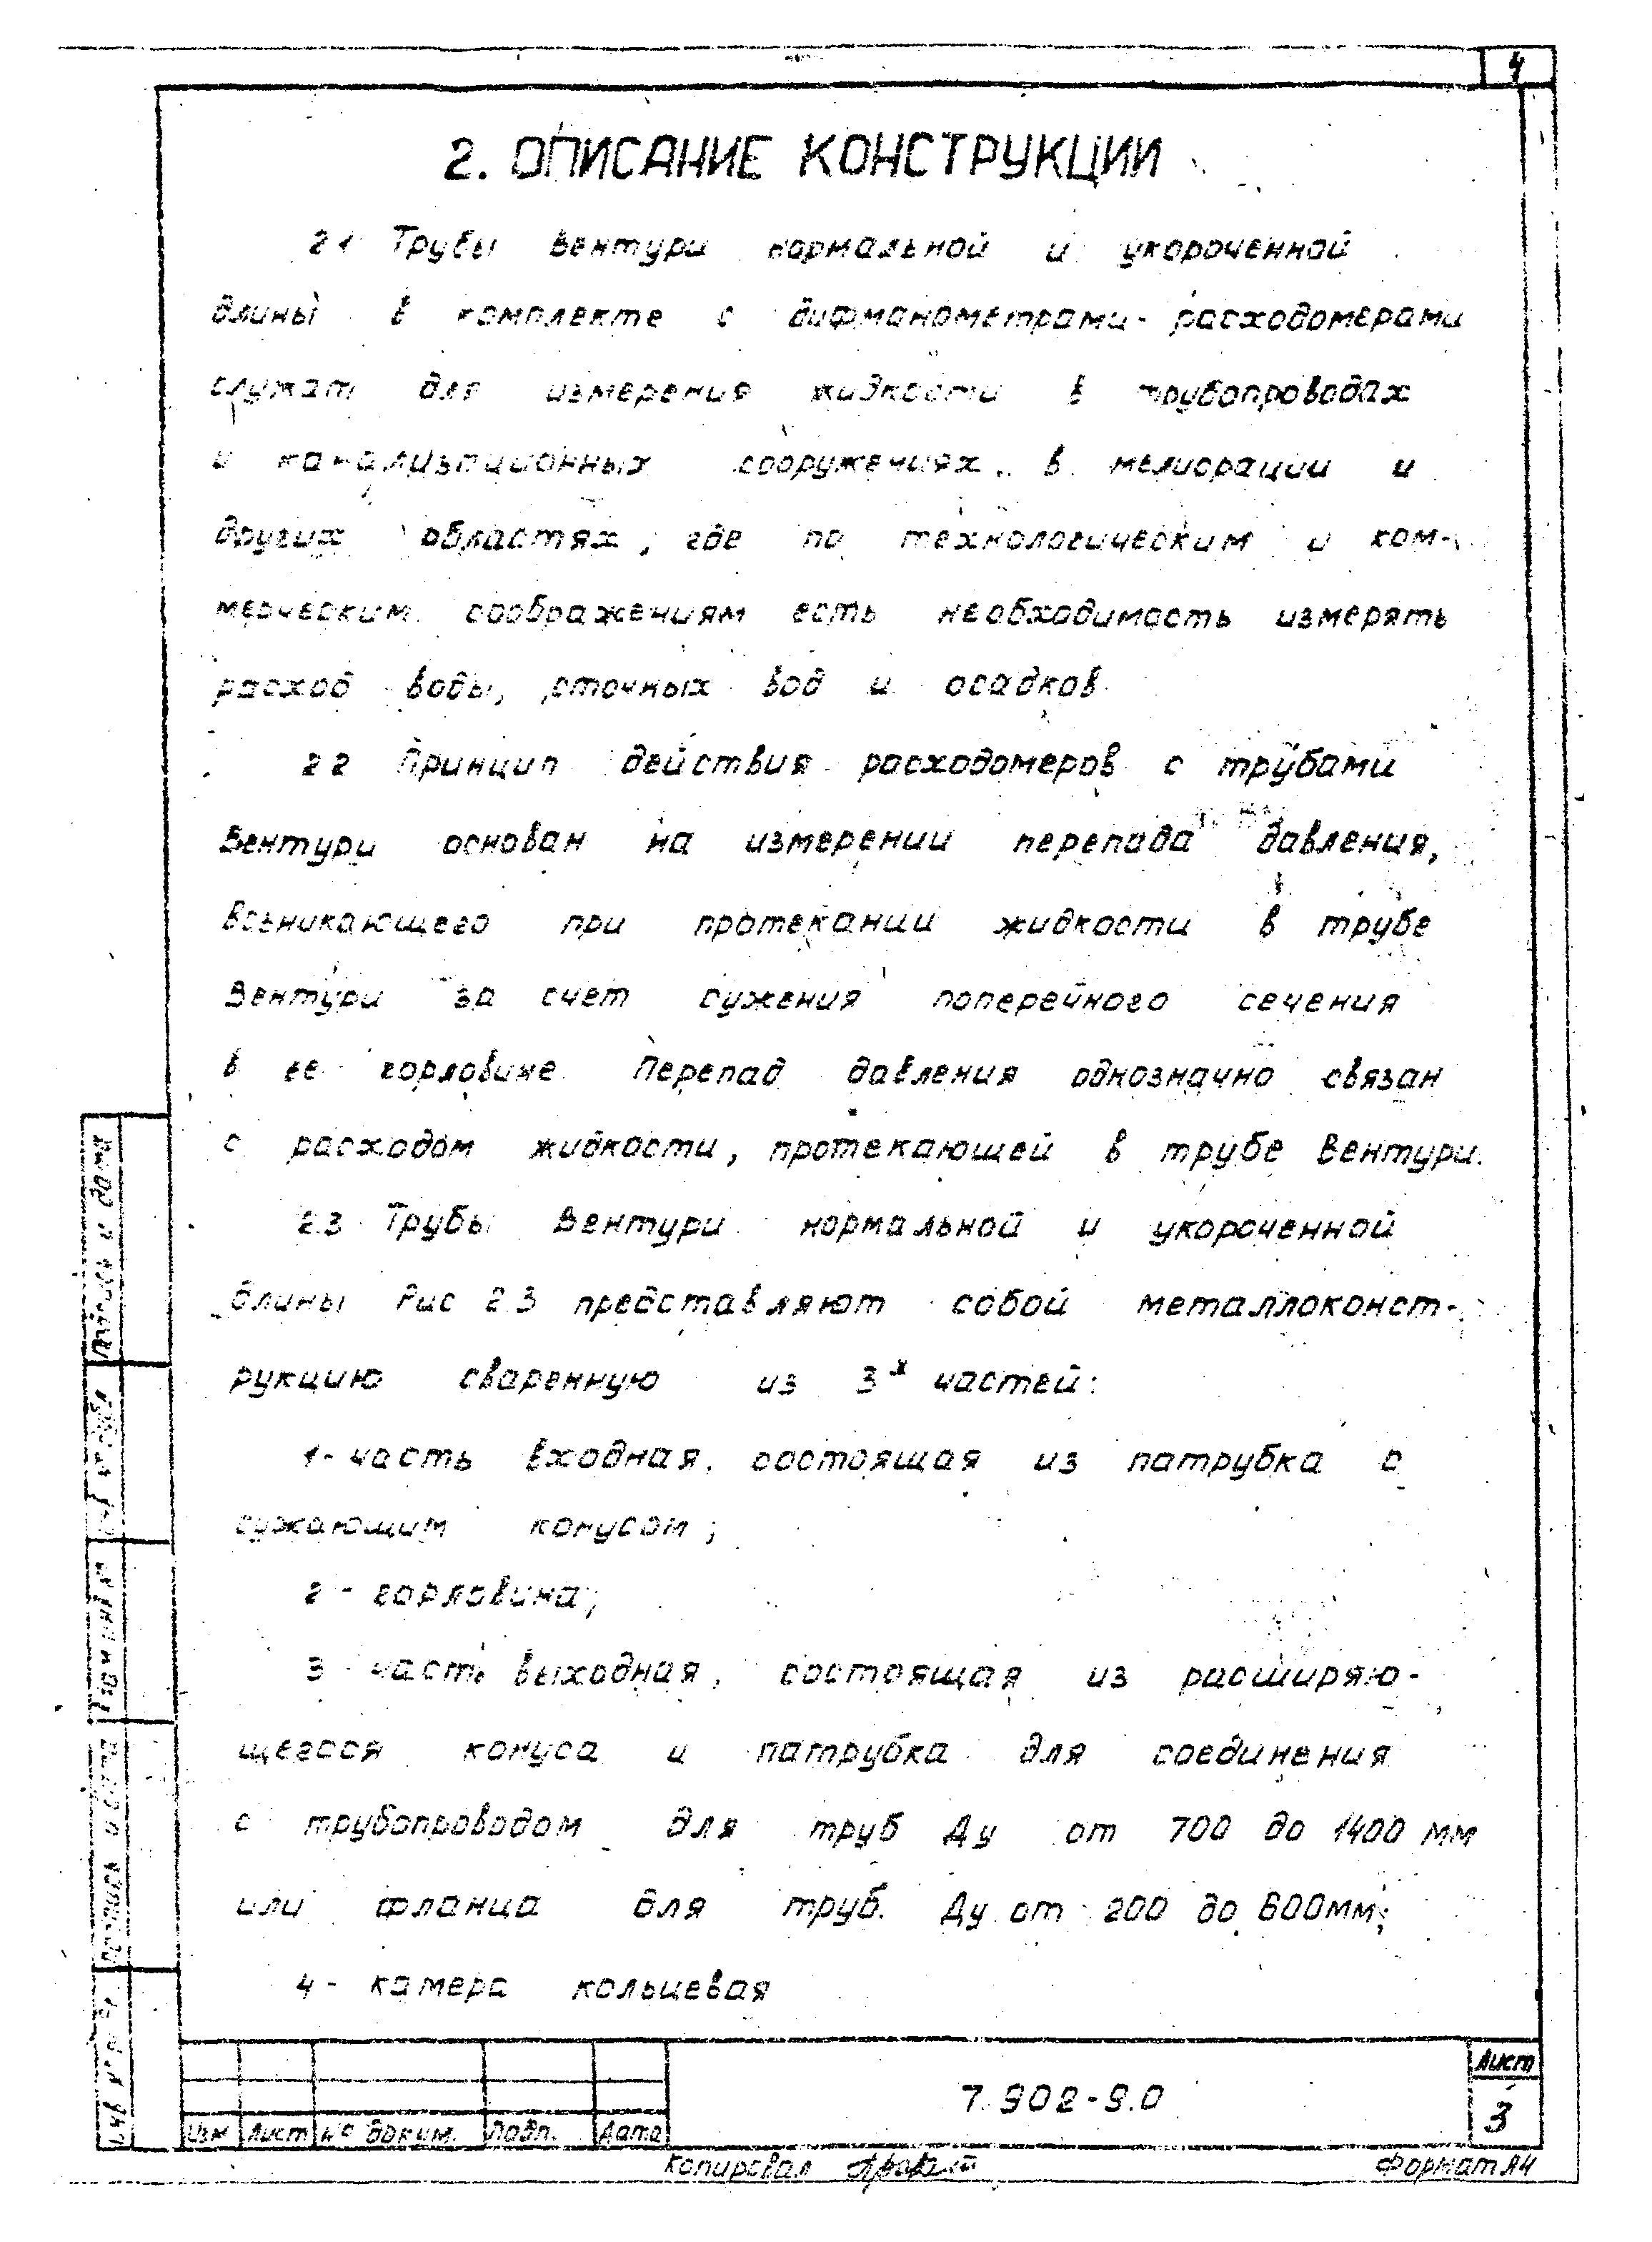 4
2. ОПИСАНИЕ КОНСТРУКЦИИ
2.1 Трубы Вентури нормальной и укороченной
длины в комплекте с дифманометрами-расходомерами
служат для измерения жидкости в трубопроводах
и канализационных сооружениях, в мелиорации и
других областях, где по технологическим и ком-
мерческим соображениям есть необходимость измерять
расход воды, сточных вод и осадков
2.2 Принцип действия расходомеров с трубами
Вентури основан на измерении перепада давления,
возникающего при протекании жидкости в трубе
Вентури за счет сужения поперечного сечения
в ее горловине Перепад давления однозначно связан
с расходом жидкости, протекающей в трубе Вентури.
2.3 Трубы Вентури нормальной и укороченной
длины Рис 2.3 представляют собой металлоконст-
рукцию сваренную из 3х частей:
1- часть входная, состоящая из патрубка с
сужающим конусом;
2 - горловина;
3 - часть выходная, состоящая из расширяю-
щегося конуса и патрубка для соединения
с трубопроводом для труб Ду от 700 до 1400 мм
или фланца для труб Ду от 200 до 600мм;
4 - камера кольцевая
Подпись и дата
Взам инв №
Подпись и дата
Инв № подл
Изм Лист № докум. Подп. Дата
7.902-9.0
Лист
3
Копировал
Формат А4